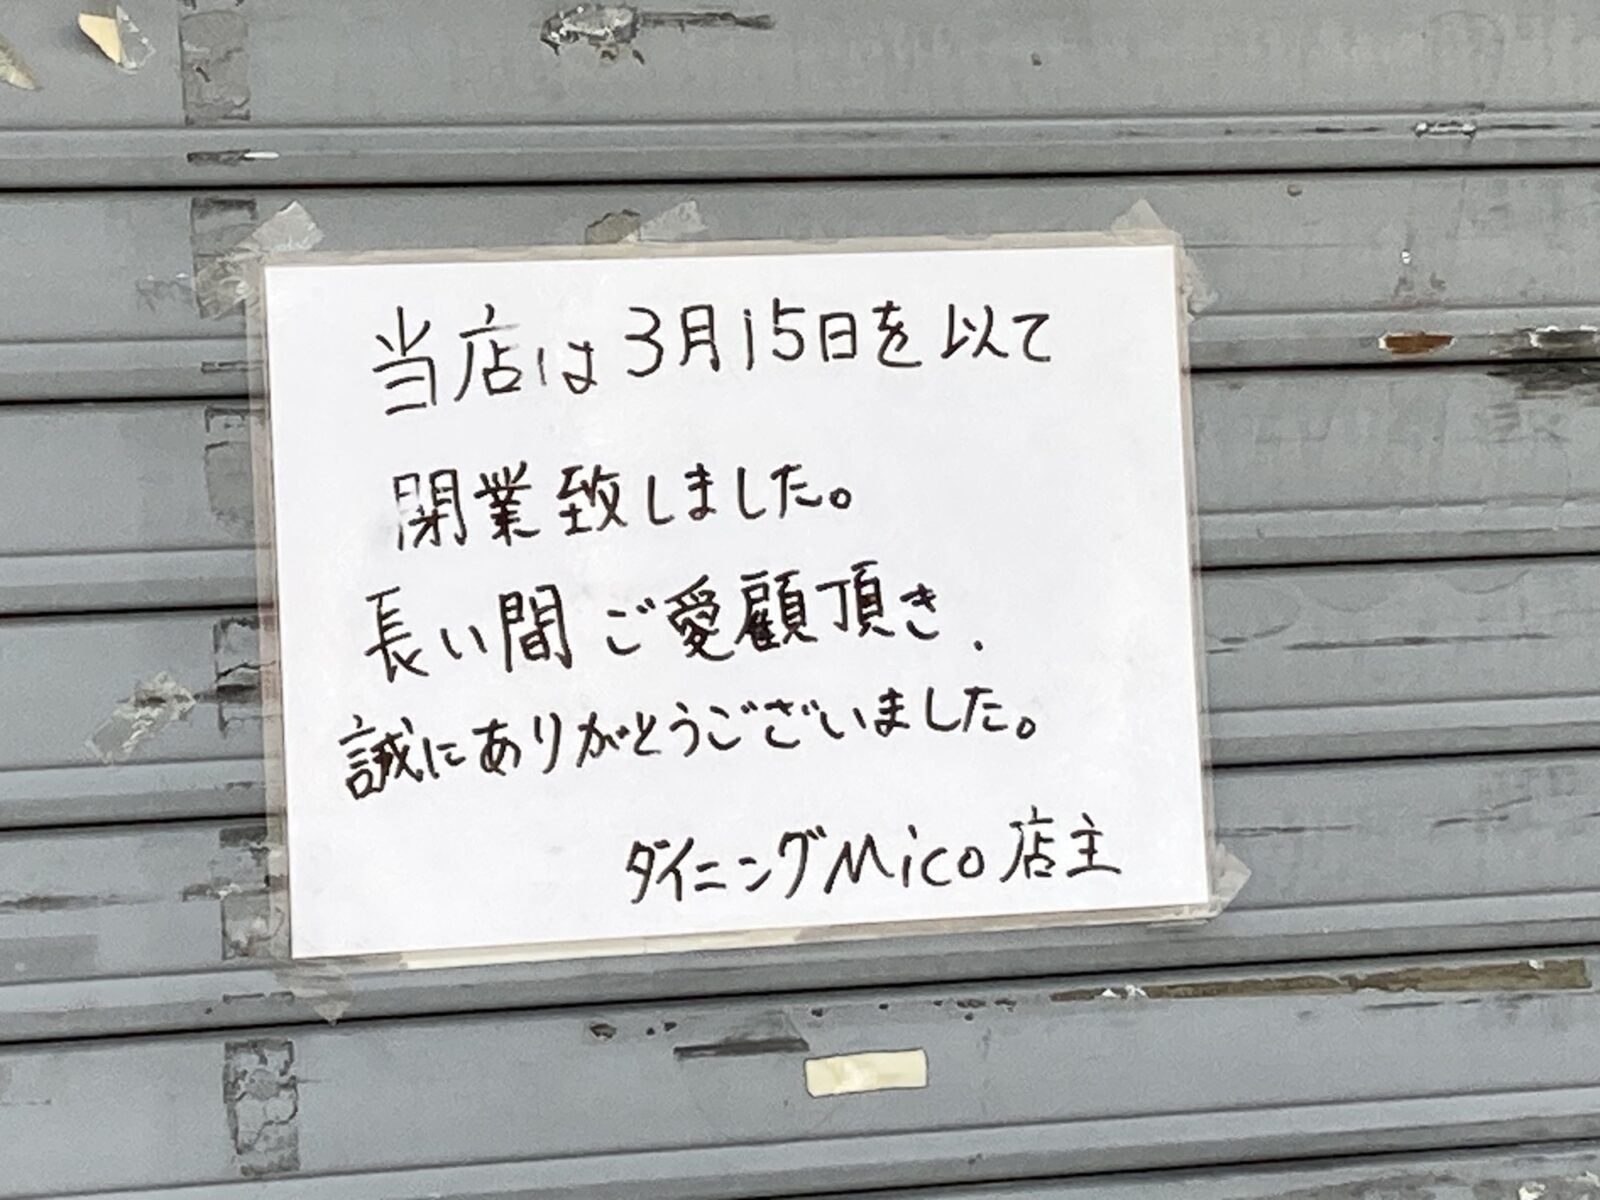 当店は3月15日を以て
閉業致しました。
長い間ご愛顧頂き、
誠にありがとうございました。
ダイニングMico店主